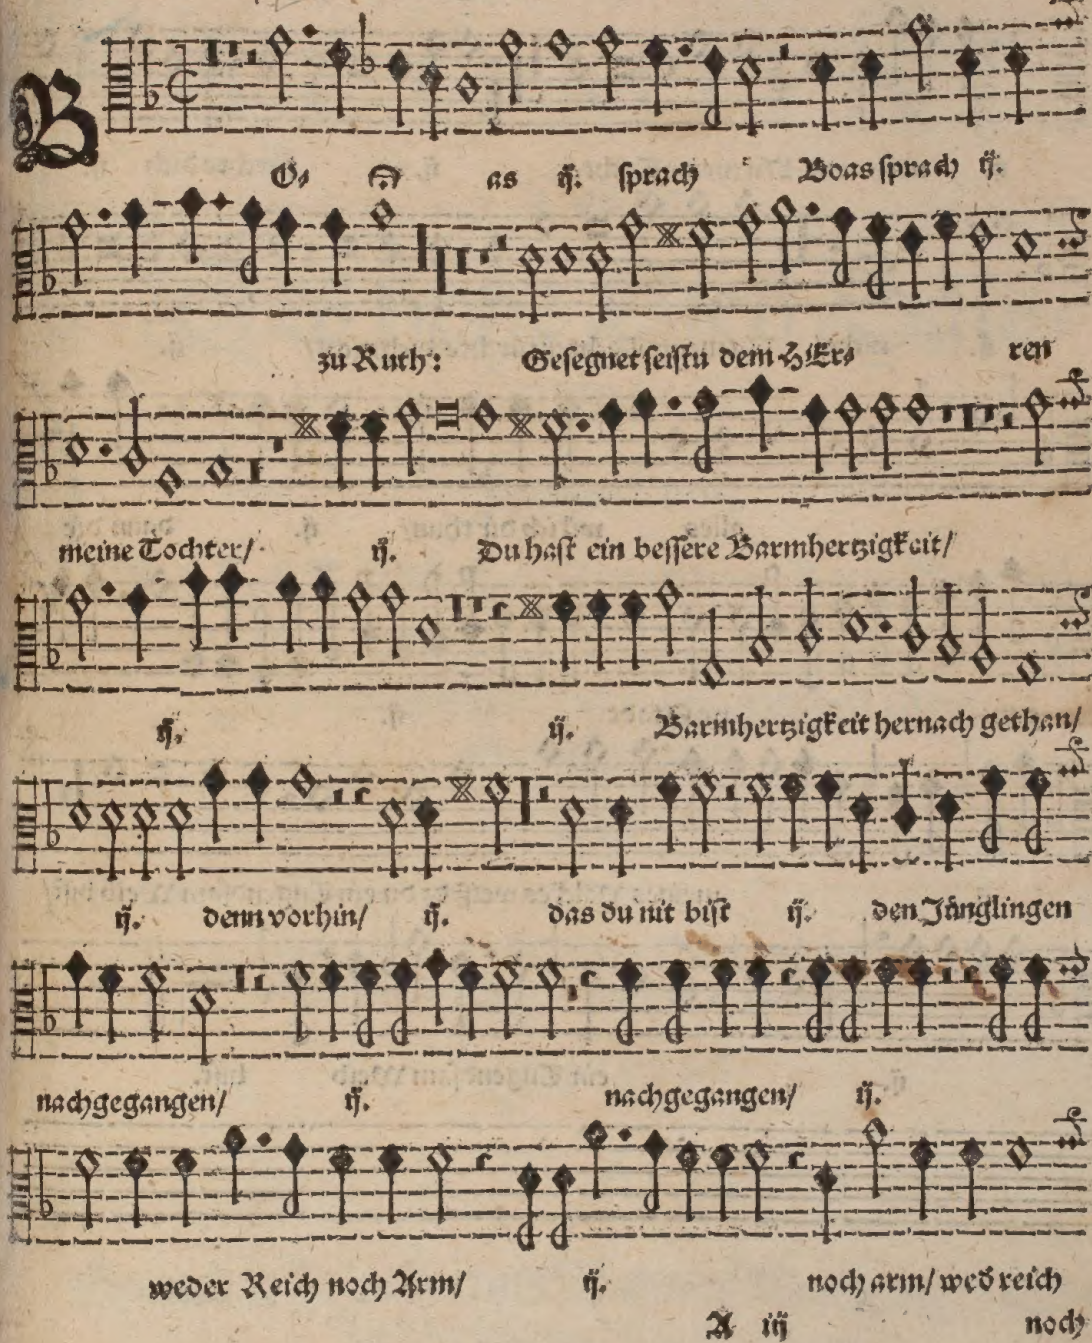 B
O- as ij. sprach Boas sprach ij.
zu Ruth: Gesegnet seistu dem HEr- ren
meine Tochter/ ij. Du hast ein bessere Barmhertzigkeit/
ij. ij. Barmhertzigkeit hernach gethan/
ij. denn vorhin/ ij. das du nit bist ij. den Jünglingen
nachgegangen/ ij. nachgegangen/ ij.
weder Reich noch Arm/ ij. noch arm/ wed reich
A iij noch